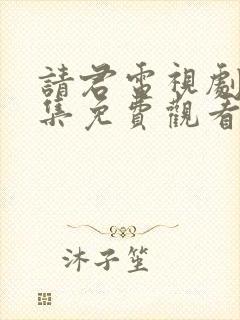 請君電視劇
集免費觀看
沐子笙